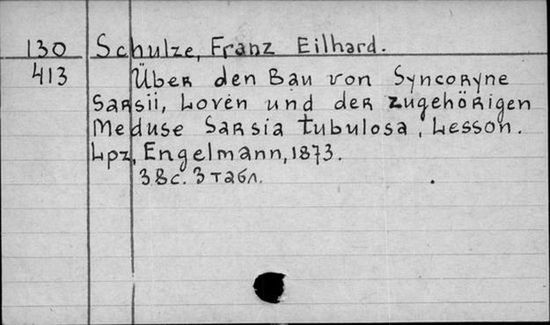 130 Schulze, Franz Eilhard.
413 Über den Bau von Syncoryne
Sarsii, Lovén und der zugehörigen
Meduse Sarsia tubulosa, Lesson.
Lpz, Engelmann, 1873.
38 с. 3 табл.